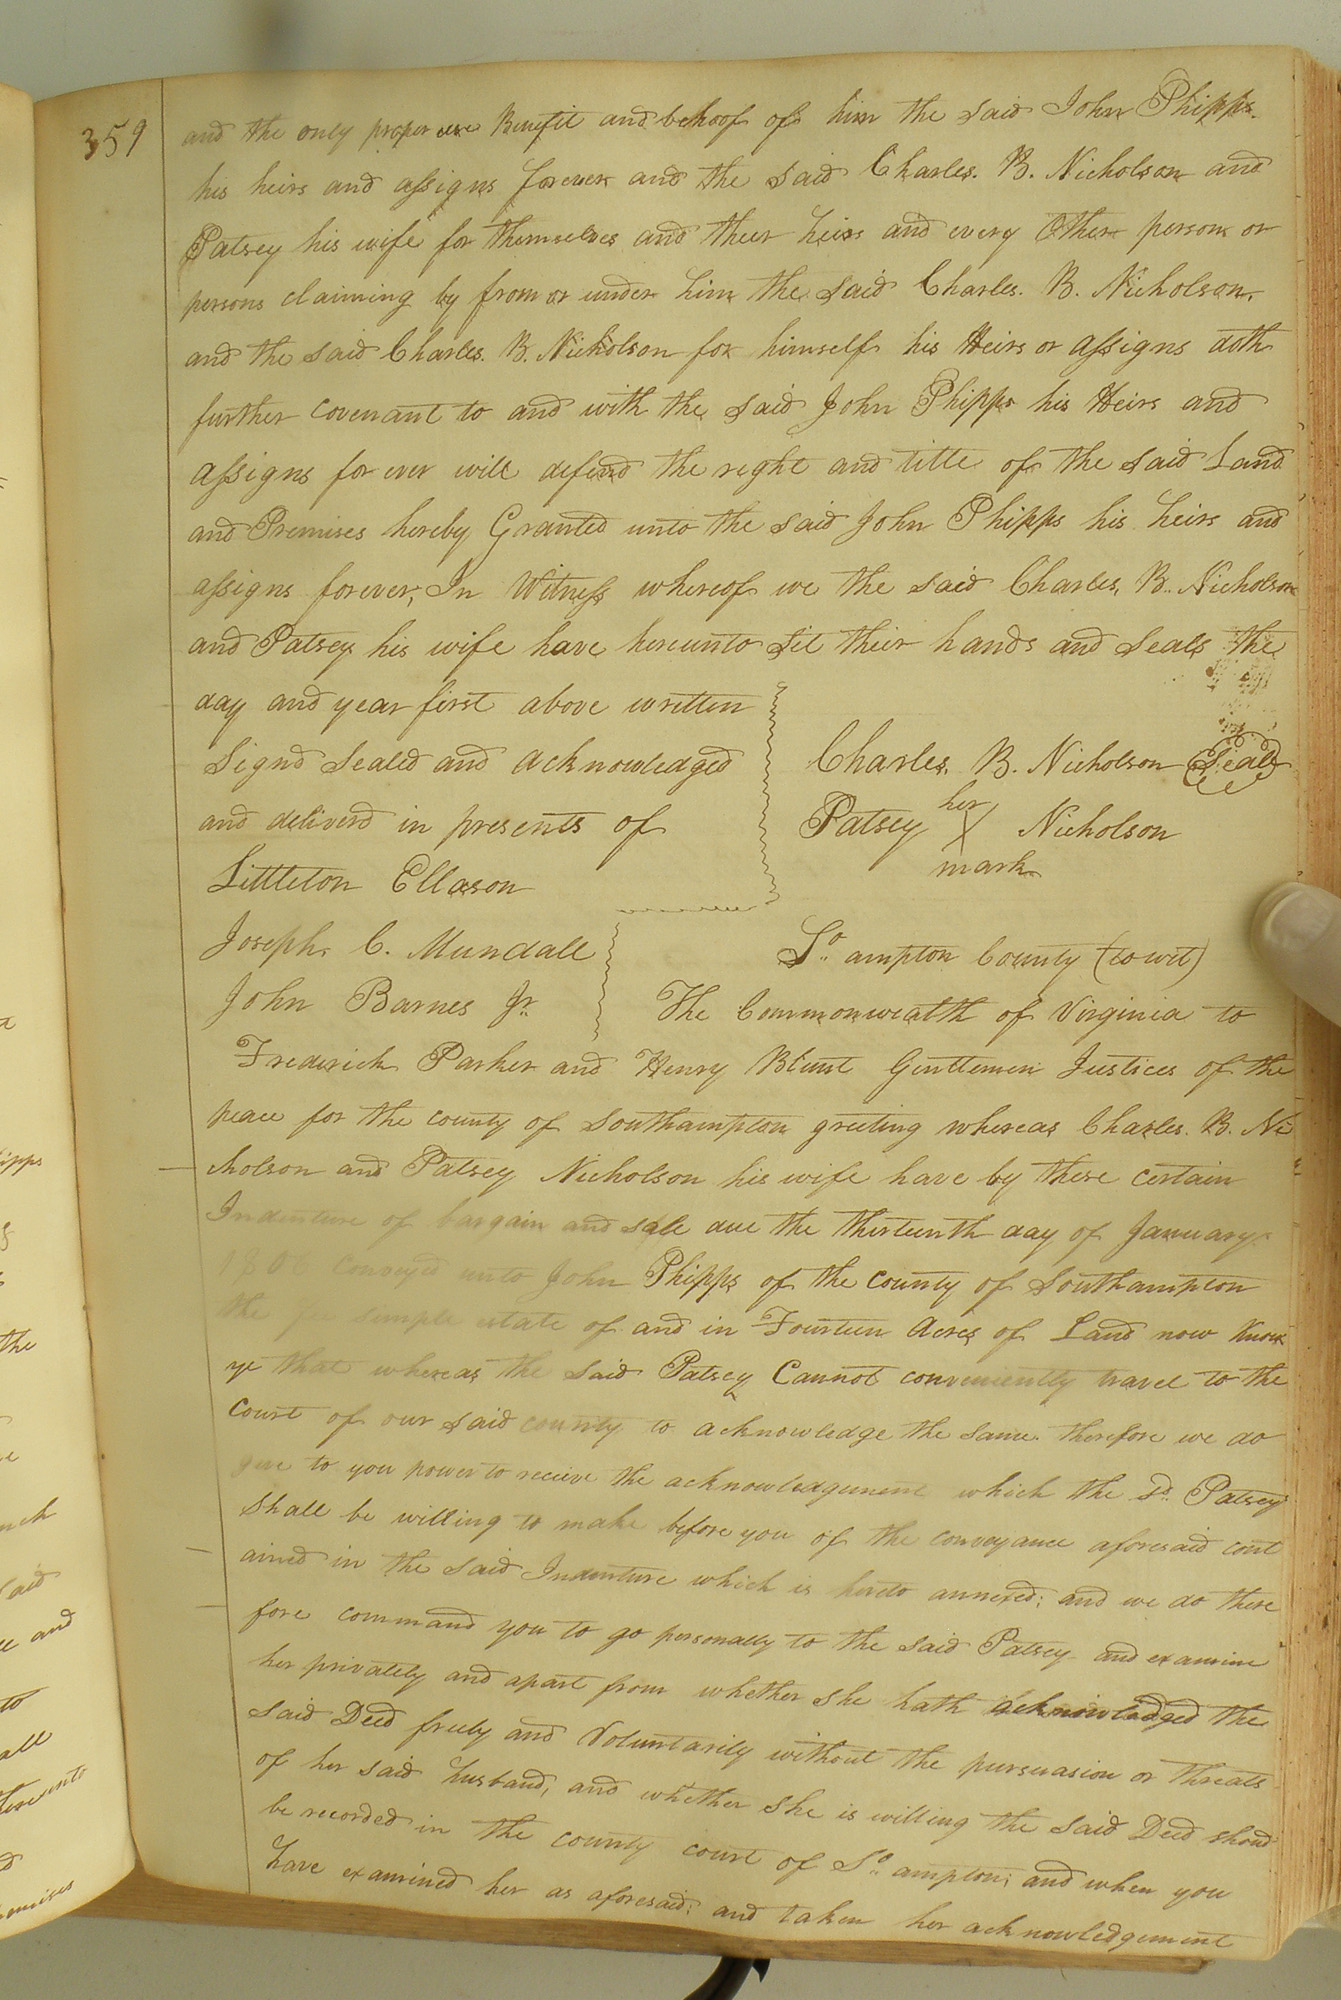 359
and the only proper use Benefit and behoof of him the said John Phipps
his heirs and assigns forever and the said Charles. B. Nicholson and
Patsey his wife for themselves and their heirs and every Other person or
persons claiming by from or under him the said Charles. B. Nicholson.
and the said Charles. B. Nicholson for himself his Heirs or assigns doth
further covenant to and with the said John Phipps his Heirs and
assigns for ever will defend the right and title of the said Land
and Premises hereby Granted unto the said John Phipps his heirs and
assigns forever, In Witness whereof we the said Charles. B. Nicholson
and Patsey his wife have hereunto Set their hands and Seals the
day and year first above written
Signd Sealed and acknowledged
and deliverd in presents of
Littleton Ellason
Joseph. C. Mundall
John Barnes Jr.
Charles. B. Nicholson Seal
Patsey her X mark Nicholson
So. ampton County (to wit)
The Commonwealth of Virginia to
Frederick Parker and Henry Blunt Gentlemen Justices of the
peace for the county of Southampton greeting whereas Charles. B. Ni
cholson and Patsey Nicholson his wife have by there certain
Indenture of bargain and sale due the thirteenth day of January
1806 conveyed unto John Phipps of the county of Southampton
the fee simple estate of and in Fourteen Acres of Land now Know
ye that whereas the said Patsey Cannot conveniently travel to the
court of our said county to acknowledge the same therefore we do
give to you power to receive the acknowledgement which the sd. Patsey
Shall be willing to make before you of the conveyance aforesaid cont
ained in the said Indenture which is hereto annexed; and we do there
fore command you to go personally to the said Patsey and examine
her privately and apart from whether she hath acknowledged the
said Deed freely and Voluntarily without the pursuasion or threats
of her said husband, and whether she is willing the said Deed shoud
be recorded in the county court of So. ampton; and when you
have examined her as aforesaid; and taken her acknowledgement